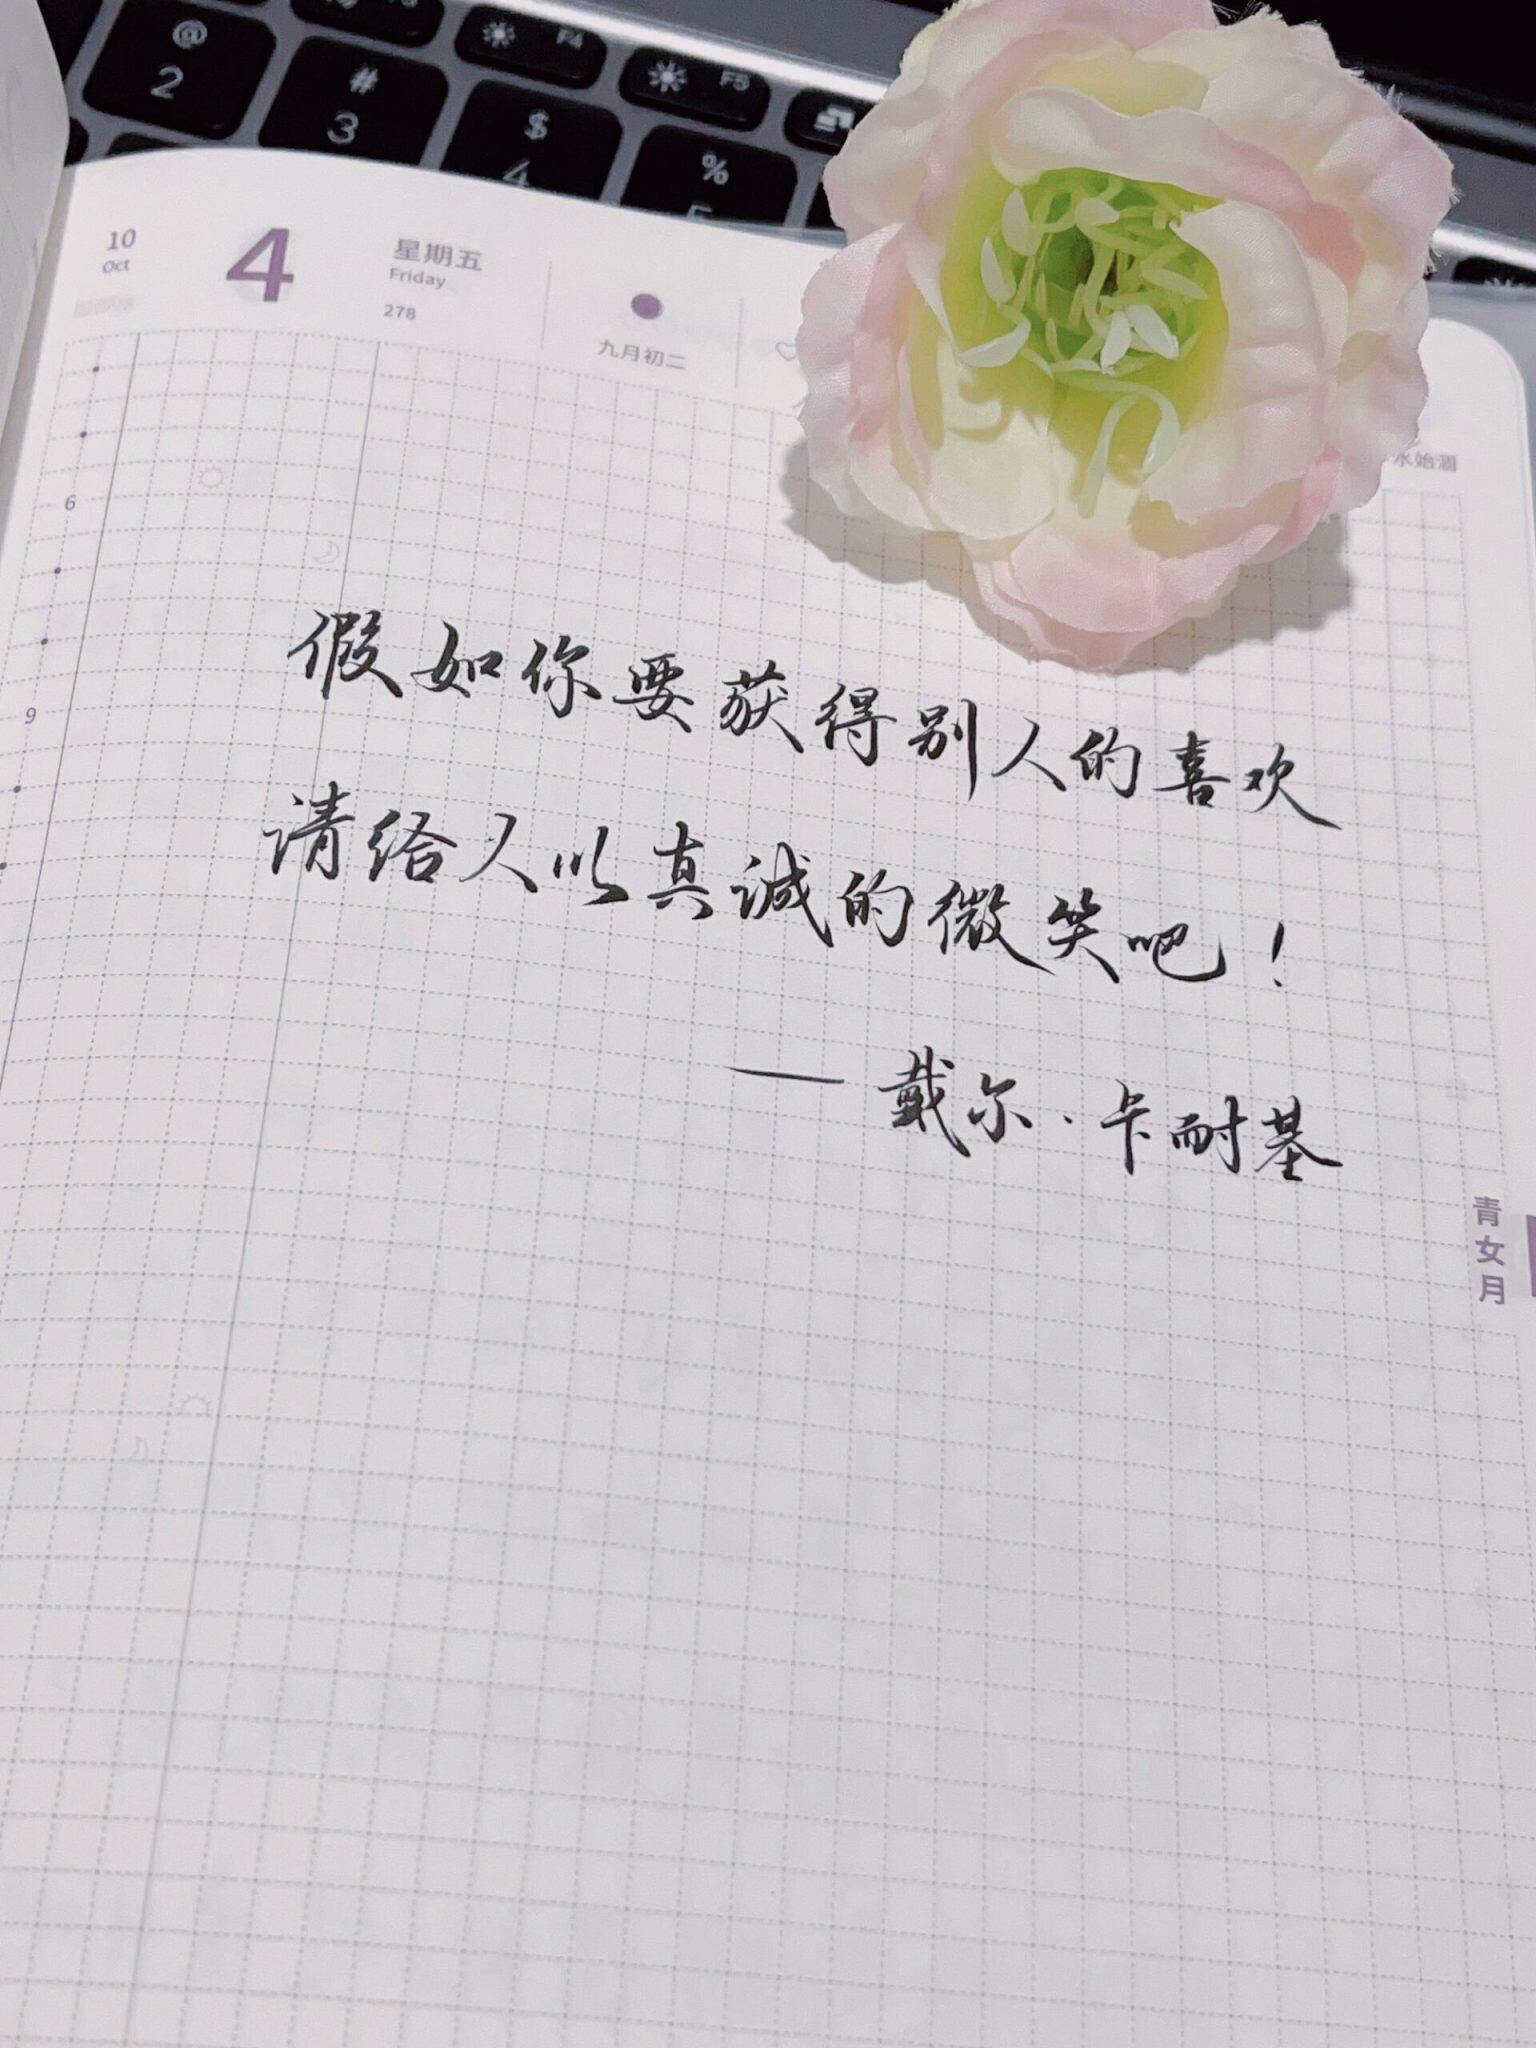 @
2
#
3
$
4
%
5
F4
F5
10
Oct
4
星期五
Friday
278
九月初二
水始涸
6
9
假如你要获得别人的喜欢
请给人以真诚的微笑吧！
— 戴尔·卡耐基
青女月